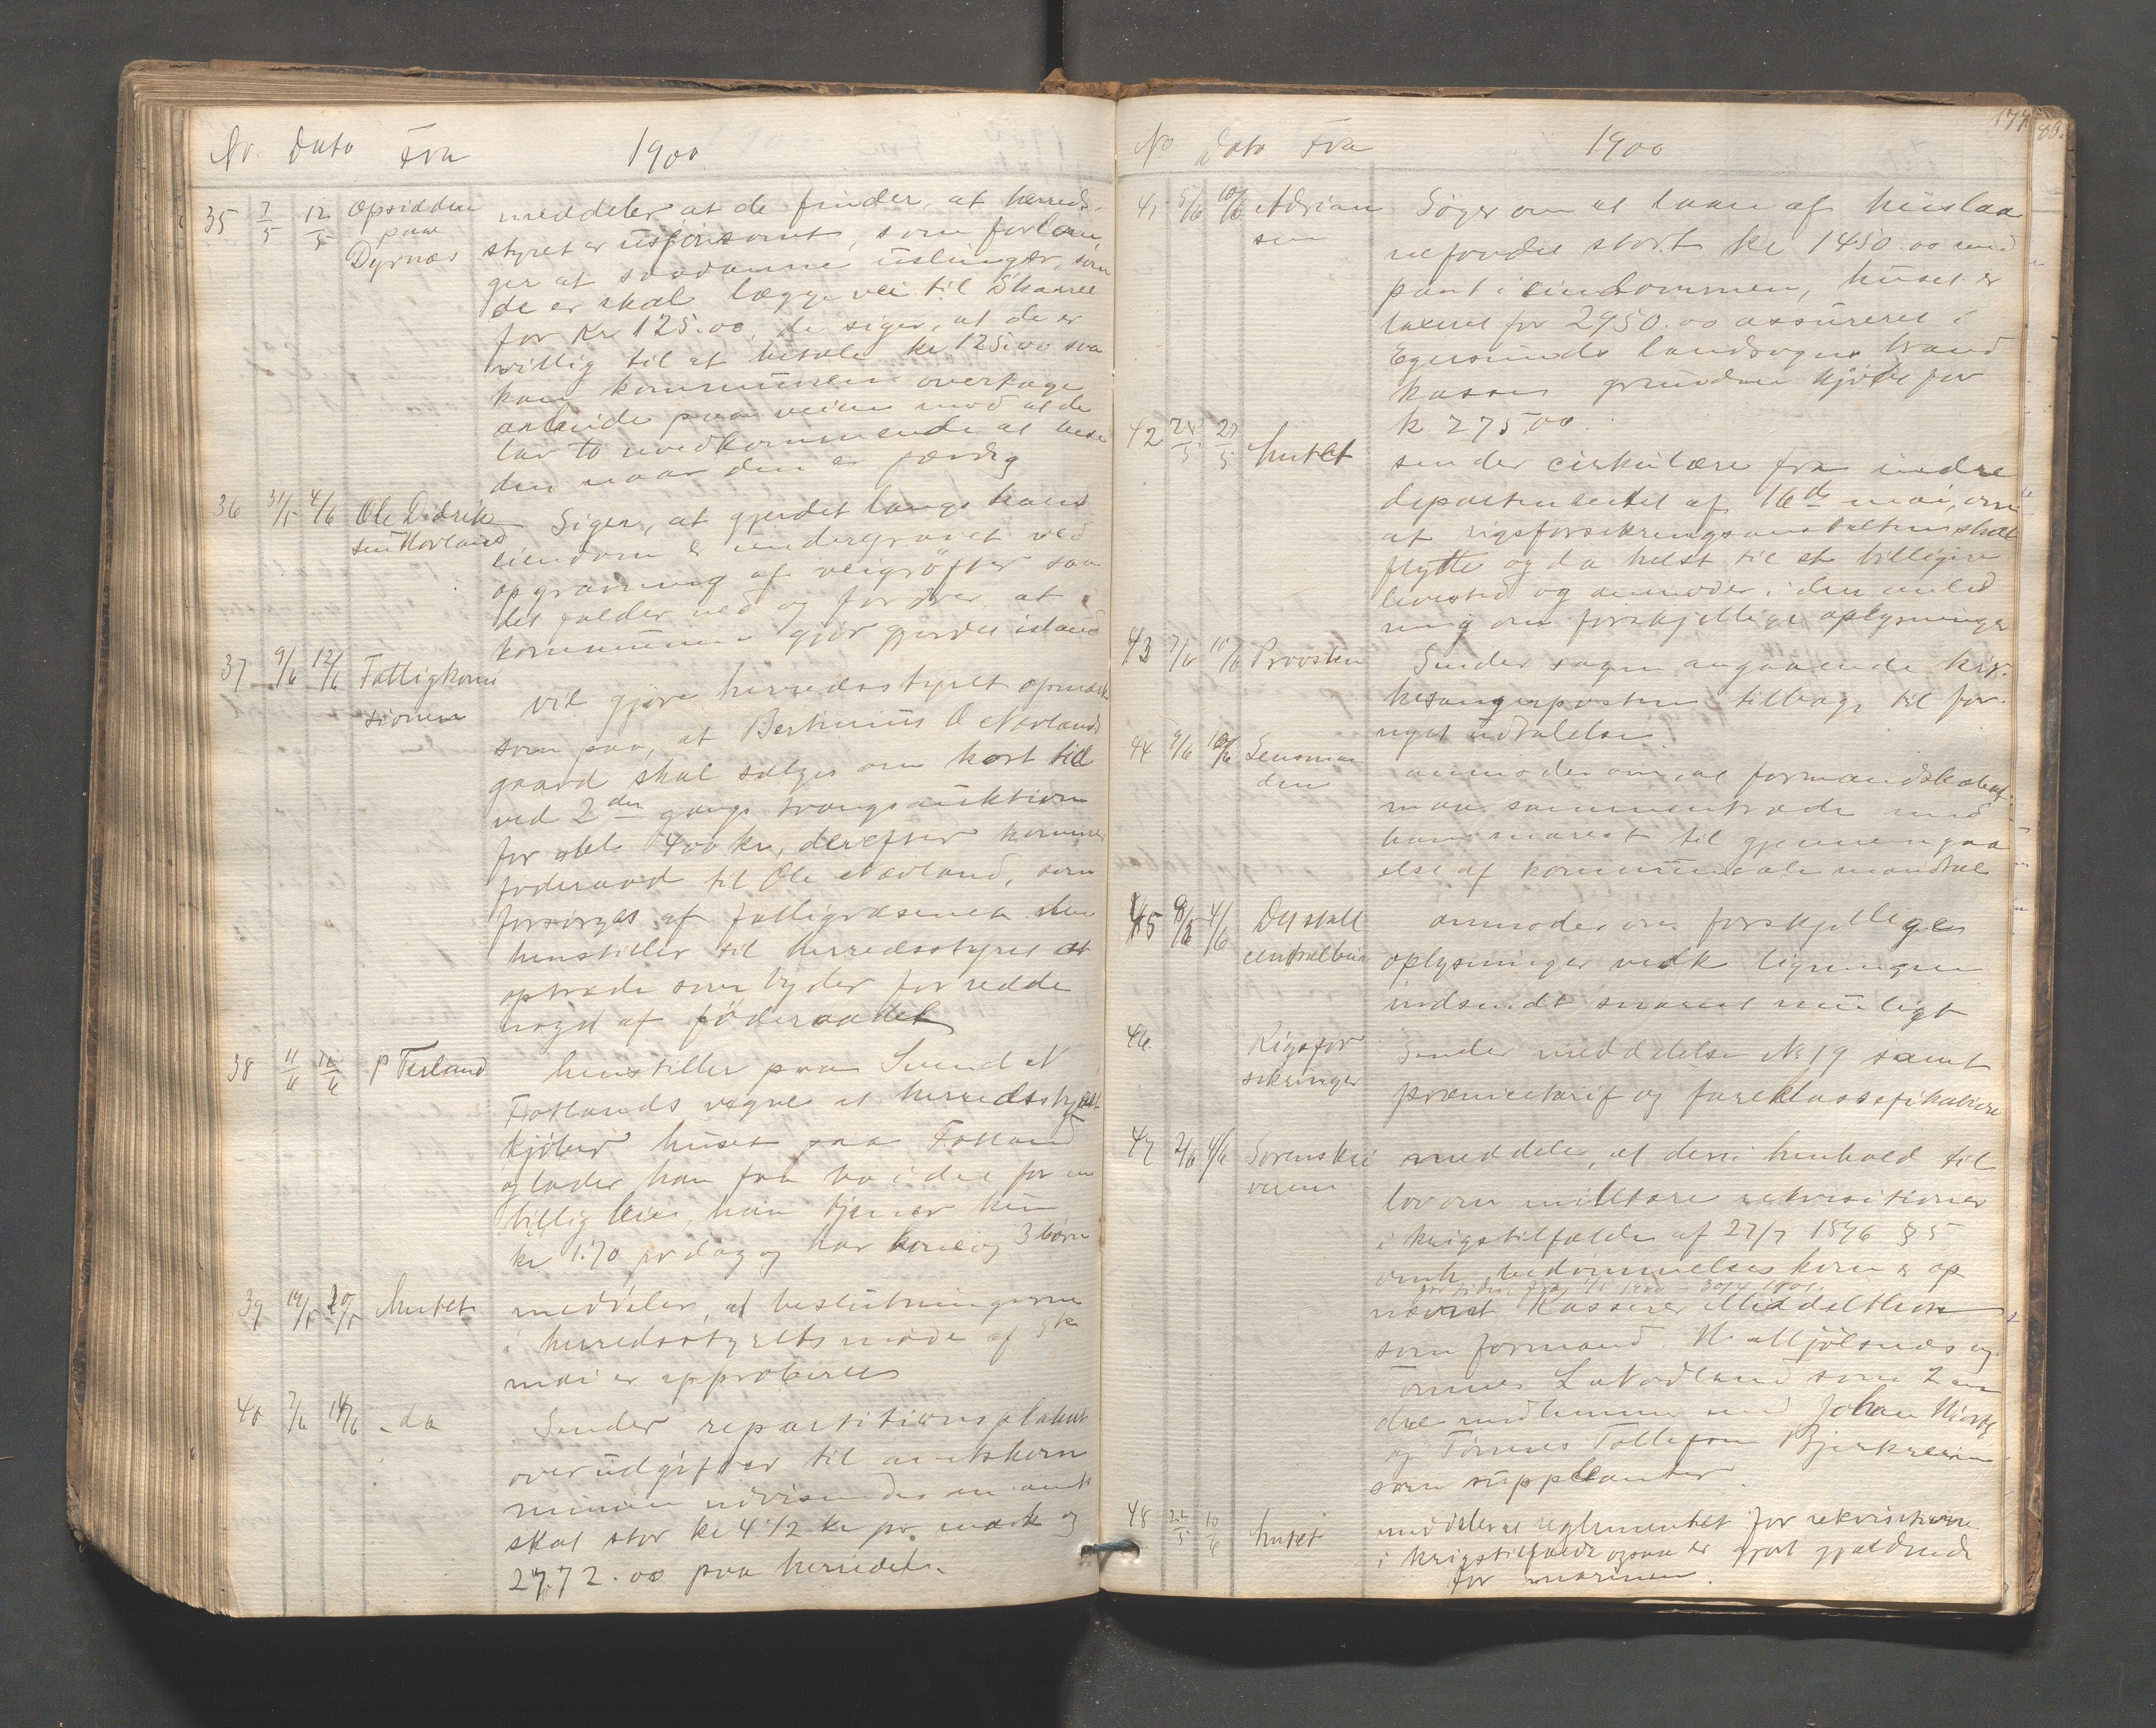 No. Dato Fra 1900
35 7/5 12/5 Opsidderne paa Dyrnæs
meddeler at de finder, at herreds-
styret er usfinsomt, som forlan
ger at saadanne uslinger, som
de er skal lægge vei til Skaaree
for Kr 125.00, de siger, at de er
villig til at betale kr 125.00 saa
kan kommunen overtage
arbeide paa veien mod at de
lar to vedkommende at bese
den naar den er færdig
36 31/5 4/6 Ole Didrik
sen Hovland
Siger, at gjerdet langs hans
eiendom er undergravet ved
opgravning af veigrøfter saa
det falder ned og fordrer, at
kommunen gjør gjerdet istand
37 9/6 12/6 Fattigkomi
sionen
vil gjøre herredsstyret opmærk
som paa, at Bertinius O Nevlands
gaard skal sælges om kort tid
ved 2den gangs tvangsauktion
for gjeld 400 kr, derefter kommer
foderaad til Ole Nevland, som
forsørges af fattigvæsenet den
henstiller til herredsstyret at
optræde som byder for redde
noget af føderaadet
38 11/6 12/6 P Terland
henstiller paa Svend N
Fotlands vegne at herredsstyret
kjøber huset paa Fotland
og lader ham faa bo i det for en
billig leie, han tjener kun
kr 1.70 pr dag og har kone og 3 børn
39 14/5 20/5 Amtet
meddeler, at beslutningerne
i herredsstyrets møde af 5te
mai er approberet
40 7/6 14/6 - do
Sender repartitionsplakat
over udgifter til amtskom
munen udvisende en amts
skat stor kr 4 1/2 kr pr. mark og
2772.00 paa herredet.
No Dato Fra 1900
177
80.
41 5/6 10/6 Adrian
sen
Søger om et laan af huslaa
nefondet stort kr 1450.00 med
pant i eiendommen, huset er
taxeret for 2950.00 assureret i
Egersunds landsogns brand
kasse grunden kjøbt for
k 275,00.
42 28/5 29/5 Amtet
sender cirkulære fra indre
departementet af 16de mai, om
at rigsforsikringsanstalten skal
flytte og da helst til et billigere
levested og anmoder i den anled
ning om forskjellige oplysninger
43 7/6 10/6 Provsten
Sender sagen angaaende kir-
kesangerposten tilbage til for-
nyet udtalelse
44 9/6 10/6 Lensman
den
anmoder om, at formandskabet
maa sammentræde med
ham snarest til gjennemgaa
else af kommunale mandtal
45 8/3 4/6 Det stati
centralbur
anmoder om forskjellige
oplysninger vedk ligningen
indsendt snarest muligt
46 Rigsfor
sikringen
Sender meddelelse No 19 samt
præmietarif og fareklassifikation
47 2/6 4/6 Sorenskri
veren
meddeler, at den i henhold til
lov om militære rekvisitioner
i krigstilfælde af 27/7 1896 § 5
omh. bedømmelseskom er op
for tiden fra 1/5 1900 - 30/4 1901.
nævnt Kasserer Middelthon
som formand N. Mjølsnes og
Tønnes L Nodland som 2 an
dre medlemmer med Johan Hierby
og Tønnes Tollefsen Bjerkreim
som suppleanter
48 22/5 10/6 Amtet
meddeler at reglementet for rekvisitioner
i krigstilfælde ogsaa er gjort gjældende
for marinen.